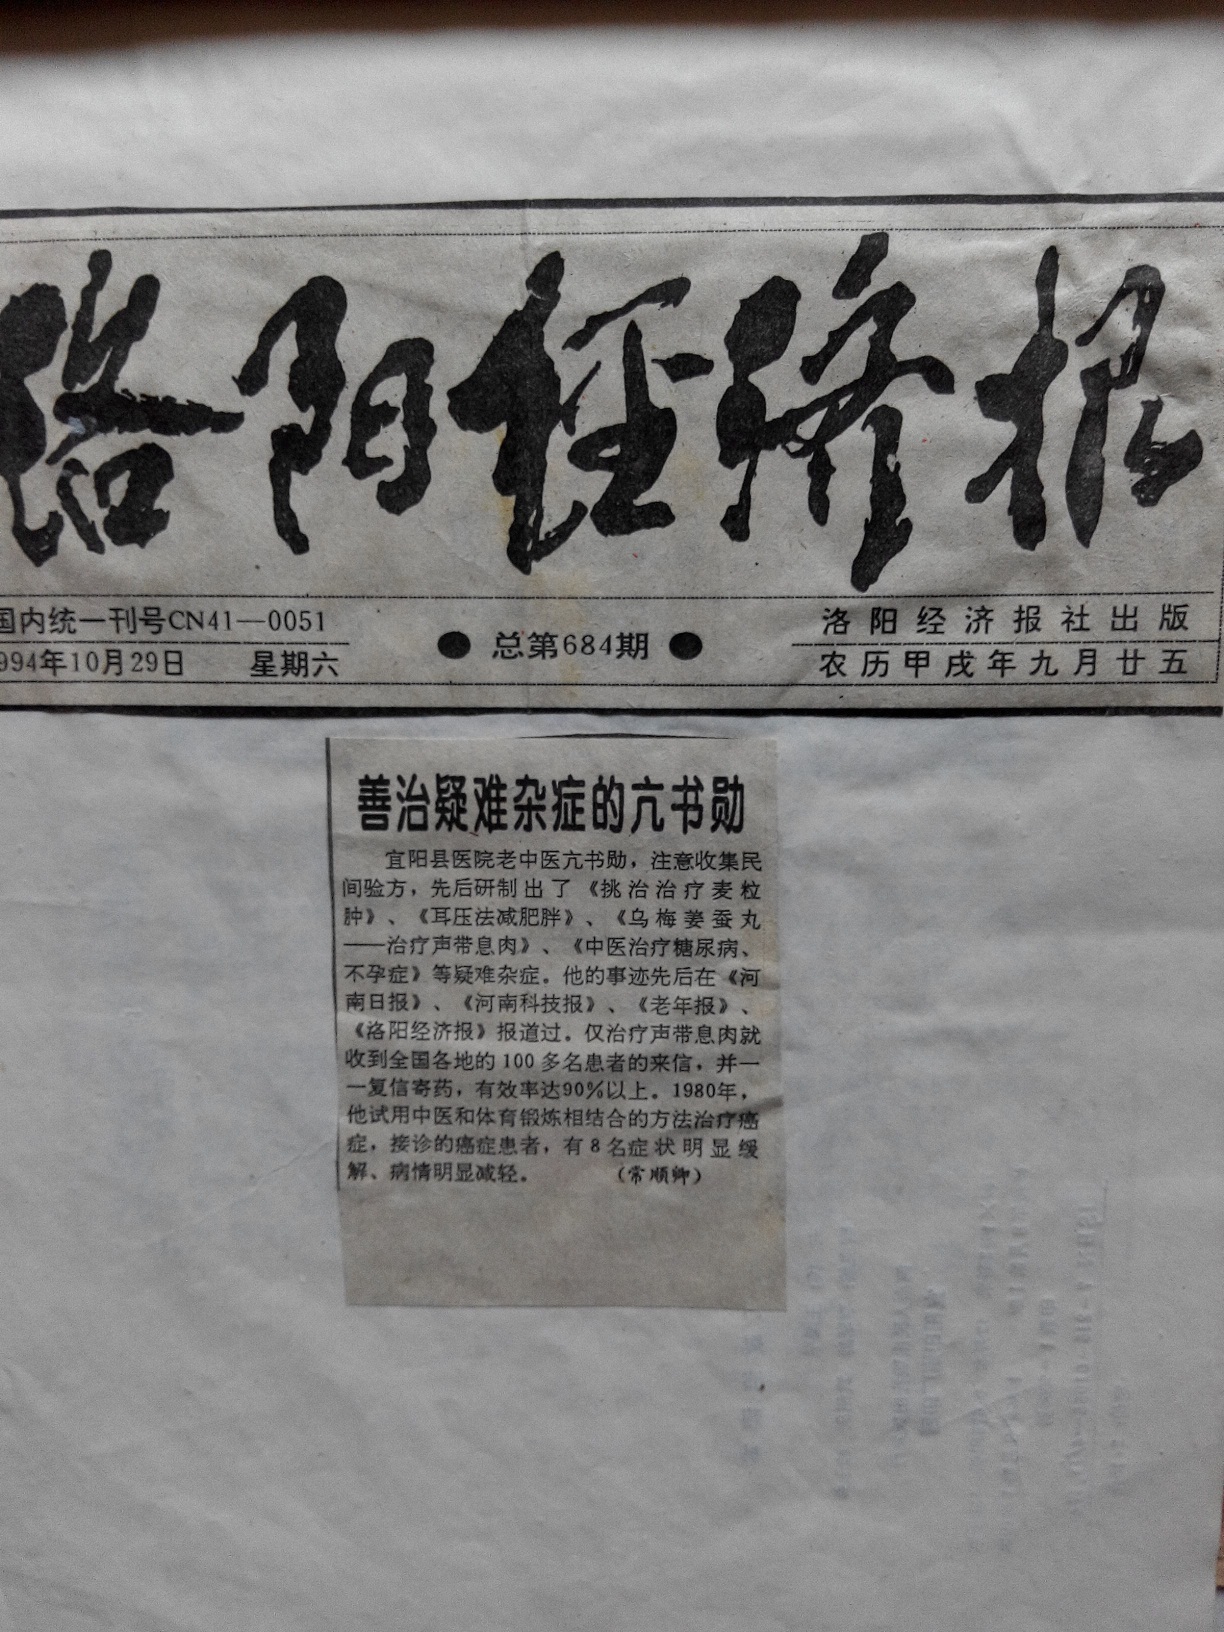 洛阳经济报
国内统一刊号CN41—0051
1994年10月29日 星期六
●总第684期●
洛阳经济报社出版
农历甲戌年九月廿五
善治疑难杂症的亢书勋
宜阳县医院老中医亢书勋，注意收集民
间验方，先后研制出了《挑治治疗麦粒
肿》、《耳压法减肥胖》、《乌梅姜蚕丸
——治疗声带息肉》、《中医治疗糖尿病、
不孕症》等疑难杂症。他的事迹先后在《河
南日报》、《河南科技报》、《老年报》、
《洛阳经济报》报道过。仅治疗声带息肉就
收到全国各地的100多名患者的来信，并一
一复信寄药，有效率达90%以上。1980年，
他试用中医和体育锻炼相结合的方法治疗癌
症，接诊的癌症患者，有8名症状明显缓
解、病情明显减轻。 （常顺卿）